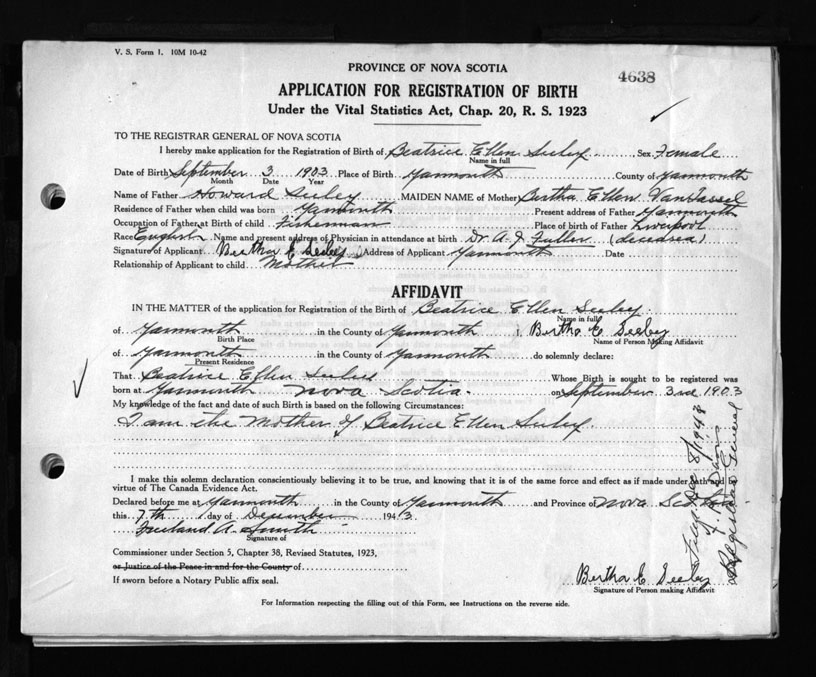 V. S. Form 1. 10M 10-42
PROVINCE OF NOVA SCOTIA
4638
APPLICATION FOR REGISTRATION OF BIRTH
Under the Vital Statistics Act, Chap. 20, R. S. 1923
TO THE REGISTRAR GENERAL OF NOVA SCOTIA
I hereby make application for the Registration of Birth of Beatrice Ellen Seeley Sex Female
Name in full
Date of Birth September 3 1903 Place of Birth Yarmouth County of Yarmouth
Month Date Year
Name of Father Howard Seeley MAIDEN NAME of Mother Bertha Ellen VanTassel
Residence of Father when child was born Yarmouth Present address of Father Yarmouth
Occupation of Father at Birth of child Fisherman Place of birth of Father Liverpool
Race English Name and present address of Physician in attendance at birth Dr. A. J. Fuller (deceased)
Signature of Applicant Bertha E Seeley Address of Applicant Yarmouth Date
Relationship of Applicant to child Mother
AFFIDAVIT
IN THE MATTER of the application for Registration of the Birth of Beatrice Ellen Seeley
Name in full
of Yarmouth in the County of Yarmouth I, Bertha E Seeley
Birth Place Name of Person Making Affidavit
of Yarmouth in the County of Yarmouth do solemnly declare:
Present Residence
That Beatrice Ellen Seeley Whose Birth is sought to be registered was
born at Yarmouth Nova Scotia on September 3rd 1903
My knowledge of the fact and date of such Birth is based on the following Circumstances:
I am the Mother of Beatrice Ellen Seeley.
I make this solemn declaration conscientiously believing it to be true, and knowing that it is of the same force and effect as if made under oath and by
virtue of The Canada Evidence Act.
Declared before me at Yarmouth in the County of Yarmouth and Province of Nova Scotia
this 7th day of December 1943.
Freeland A. Smith
Signature of
Commissioner under Section 5, Chapter 38, Revised Statutes, 1923,
or Justice of the Peace in and for the County of
If sworn before a Notary Public affix seal.
Bertha E Seeley
Signature of Person making Affidavit
For Information respecting the filling out of this Form, see Instructions on the reverse side.
Filed Dec 8/1943
Davis
Registrar General